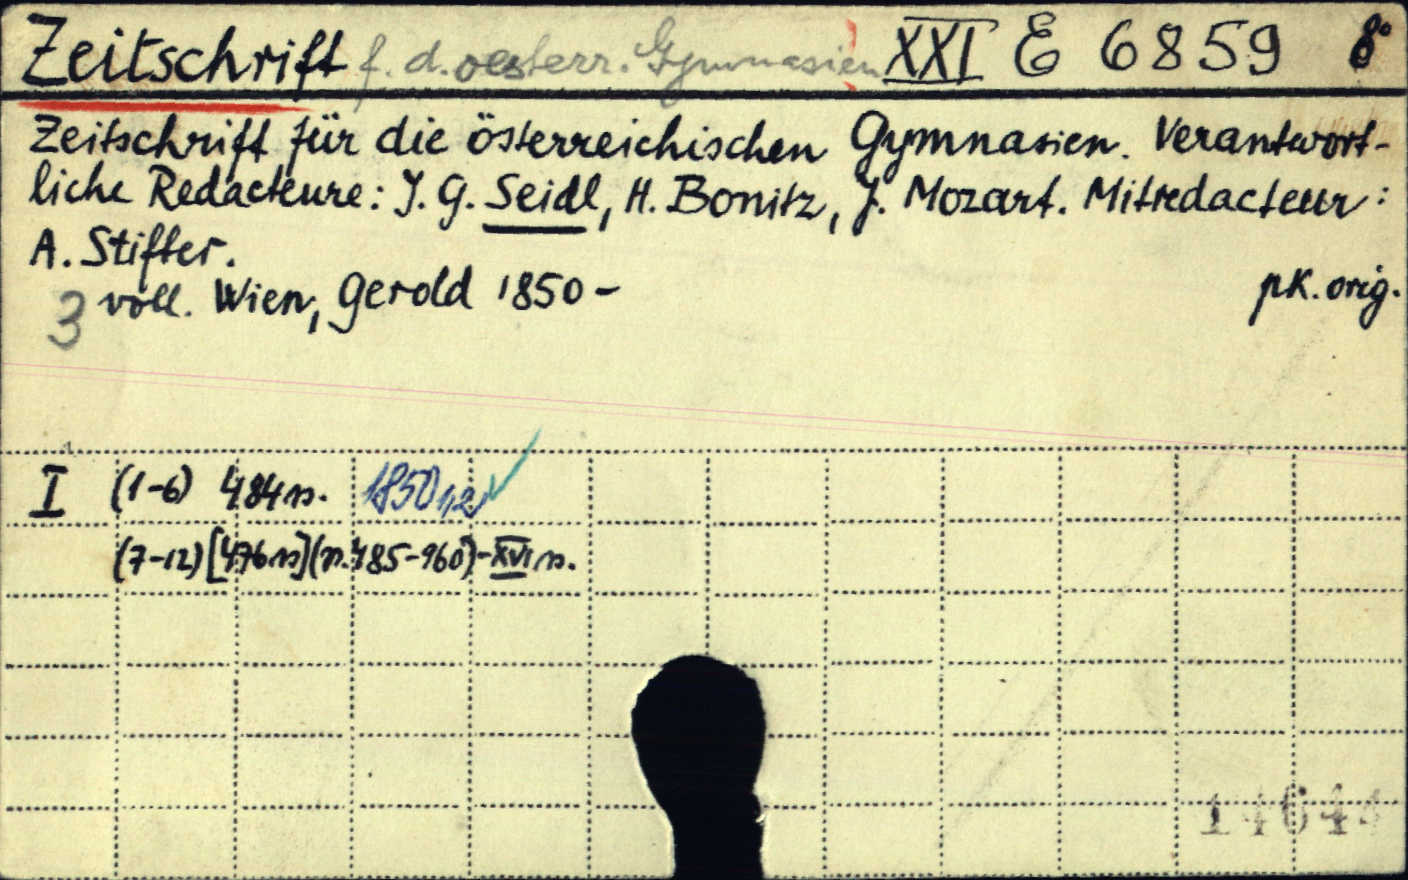 Zeitschrift f. d. oesterr. Gymnasien XXI E 6859 8°
Zeitschrift für die österreichischen Gymnasien. Verantwort-
liche Redacteure: J. G. Seidl, H. Bonitz, J. Mozart. Mitredacteur:
A. Stifter.
3 voll. Wien, Gerold 1850 - pk. orig.
I (1-6) 484 s. 1850 1,2
(7-12) [476 s] (s. 485-960)-XVI s.